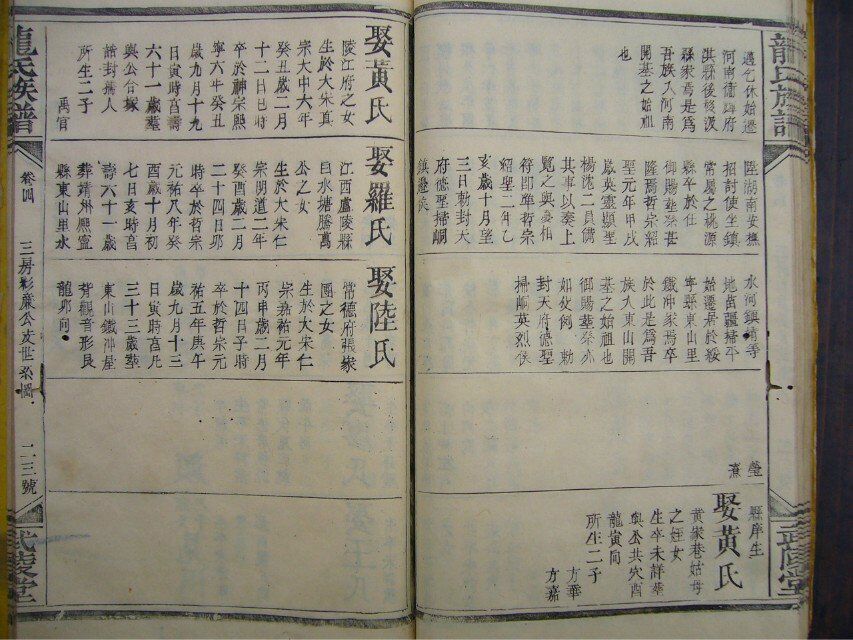 龍氏族譜
遇乞休始遷
河南衛輝府
淇縣後終汲
縣家焉是爲
吾族入河南
開基之始祖
也
陞湖南安撫
招討使坐鎮
常屬之桃源
縣卒於仕
御賜塟祭甚
隆焉哲宗紹
聖元年甲戌
歲英靈顯聖
楊沈二員備
其事以奏上
覽之與夢相
符即準哲宗
紹聖二年乙
亥歲十月望
三日勅封天
府德聖掃峒
鎮邊侯
水河鎮靖等
地苗疆掃平
始遷居於綏
寧縣東山里
鐵冲家焉卒
於此是爲吾
族入東山開
基之始祖也
御賜塟祭亦
如伙例 勅
封天府德聖
掃峒英烈侯
瑩
縣庠生
娶黃氏
黃家巷姑母
之姪女
生卒未詳塟
與公共穴酉
龍寅向
所生二子
方華
方嘉
武陵堂
娶黃氏
陵江府之女
生於大宋真
宗大中六年
癸丑歲二月
十二日巳時
卒於神宗熙
寧六年癸丑
歲九月十九
日寅時享壽
六十一歲塟
與公合塚
誥封孺人
所生二子
禹官
娶羅氏
江西盧陵縣
白水塘騰萬
公之女
生於大宋仁
宗明道二年
癸酉歲二月
二十四日卯
時卒於哲宗
元祐八年癸
酉歲十月初
七日亥時享
壽六十一歲
葬靖州熙寧
縣東山里水
娶陸氏
常德府張家
團之女
生於大宋仁
宗嘉祐元年
丙申歲二月
十四日子時
卒於哲宗元
祐五年庚午
歲九月十三
日寅時享凡
三十三歲塟
東山鐵冲屋
背觀音形艮
龍卯向
龍氏族譜
卷四
三房彩廉公支世系圖
二三號
武陵堂